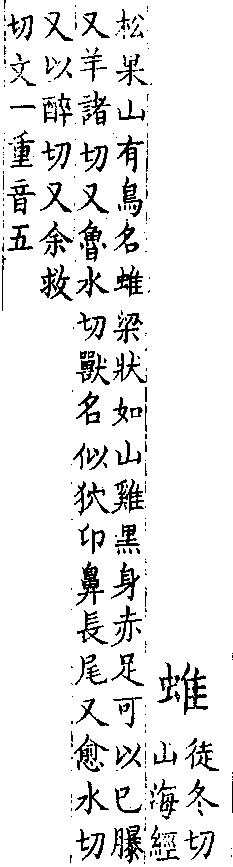 蜼
徒冬切
山海經
松果山有鳥名蜼梁狀如山雞黑身赤足可以已曝
又羊諸切又魯水切獸名似狖卬鼻長尾又愈水切
又以醉切又余救
切文一重音五